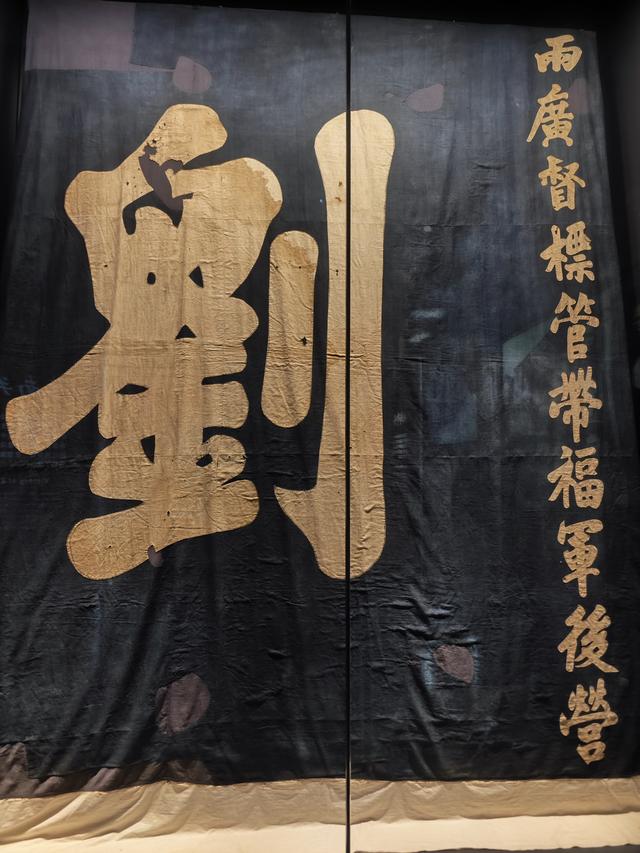 兩廣督標管帶福軍後營
劉